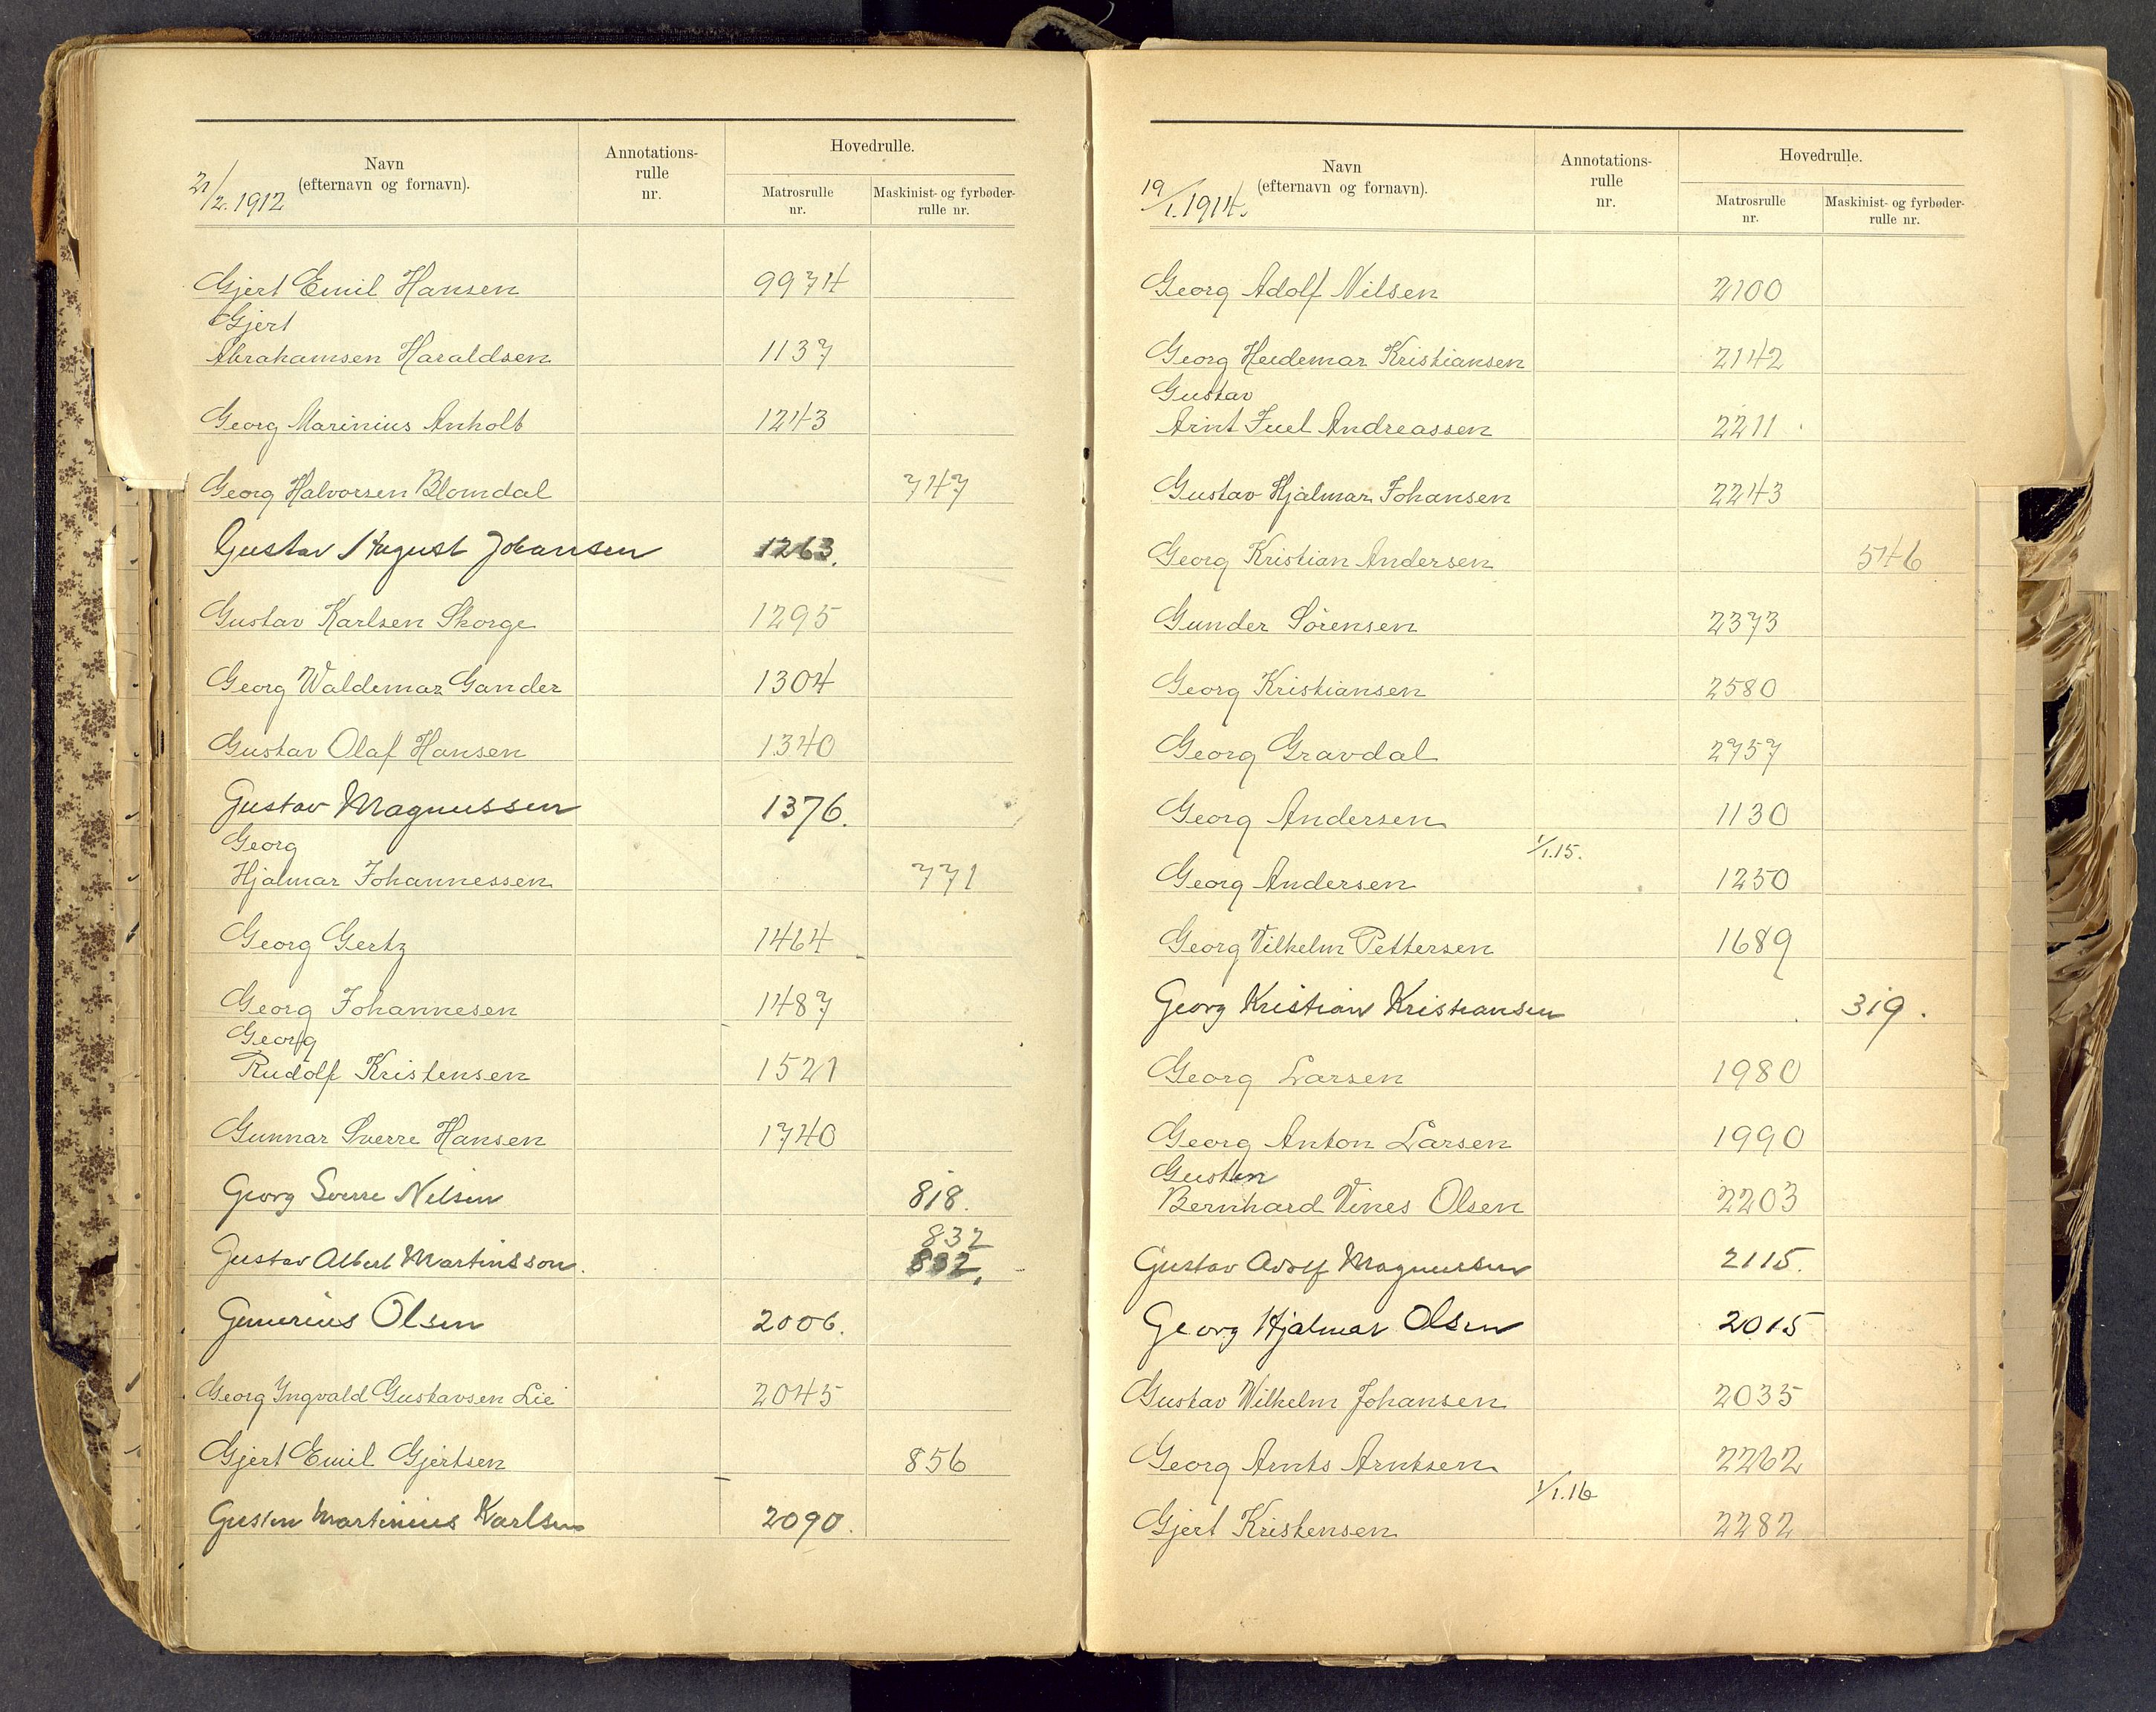 21/2.1912
Navn
(efternavn og fornavn).
Annotations-
rulle
nr.
Hovedrulle.
Matrosrulle
nr.
Maskinist- og fyrbøder-
rulle nr.
Gjert Emil Hansen 9974
Gjert
Abrahamsen Haraldsen 1137
Georg Marinius Anholt 1243
Georg Halvorsen Blomdal 747
Gustav August Johansen 1263.
Gustav Karlsen Skorge 1295
Georg Waldemar Gander 1304
Gustav Olaf Hansen 1340
Gustav Magnussen 1376.
Georg
Hjalmar Johannessen 771
Georg Gertz 1464
Georg Johannesen 1487
Georg
Rudolf Kristensen 1521
Gunnar Sverre Hansen 1740
Georg Sverre Nilsen 818.
832
Gustav Albert Martinsson. 832.
Gunerius Olsen 2006.
Georg Yngvald Gustavsen Lie 2045
Gjert Emil Gjertsen 856
Gustav Martinius Karlsen 2090.
19/1.1914.
Navn
(efternavn og fornavn).
Annotations-
rulle
nr.
Hovedrulle.
Matrosrulle
nr.
Maskinist- og fyrbøder-
rulle nr.
Georg Adolf Nilsen 2100
Georg Heidemar Kristiansen 2142
Gustav
Arnt Juel Andreassen 2211
Gustav Hjalmar Johansen 2243
Georg Kristian Andersen 546
Gunder Sörensen 2373
Georg Kristiansen 2580
Georg Gravdal 2757
Georg Andersen 1130
1/1.15.
Georg Andersen 1250
Georg Vilhelm Pettersen 1689
Georg Kristian Kristiansen 319.
Georg Larsen 1980
Georg Anton Larsen 1990
Gustav
Bernhard Vines Olsen 2203
Gustav Adolf Magnussen 2115.
Georg Hjalmar Olsen 2015
Gustav Wilhelm Johansen 2035
Georg Arnts Arntsen 2262
1/1.16
Gjert Kristensen 2282